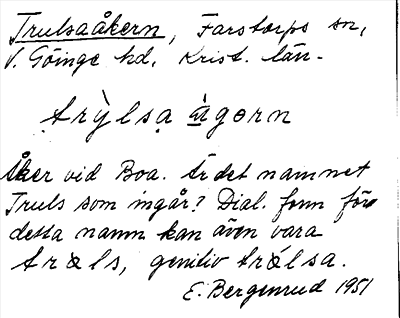 Trulsaåkern, Farstorps sn,
V. Göinge hd, Krist. län.
trỳlsa ùgərn
Åker vid Boa. Är det namnet
Truls som ingår? Dial. form för
detta namn kan även vara
træls, genitiv trǽlsa.
E. Bergenrud 1951